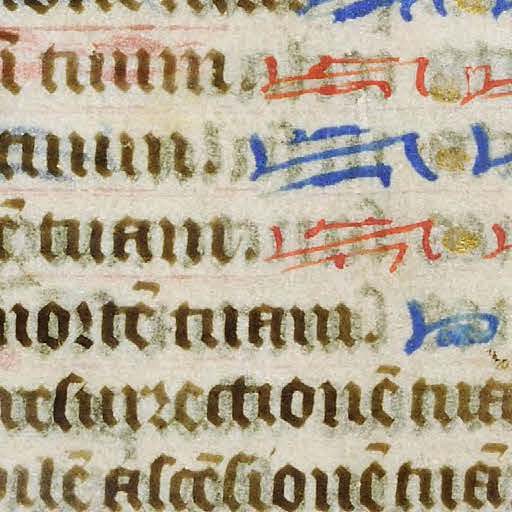 tuum
tuum.
tuam.
mortē tuam.
resurrectionē tuā
ilē ascēsionē tuā